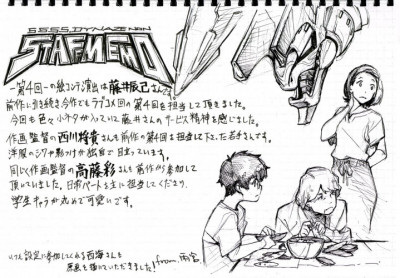 SSSS.DYNAZENON
STAFF MEMO
一第4回一の絵コンテ演出は藤井辰己さんです。
前作に引き続き今作でもラブコメ回の第4回を担当して頂きました。
今回も色々小ネタが入っていて藤井さんのサービス精神を感じました。
作画監督の西川将貴さんも前作の第4回を担当して下さった若き
洋服のシワや影つけが独自で目立っています。
同じく作画監督の高藤彩さんも前作から参加して
頂いていました。日常パートを主に担当してくださり
学生キャラが丸めで可愛いです。
設定に参加してくれる西海さんも
原画を描いていただきました!
from.雨宮